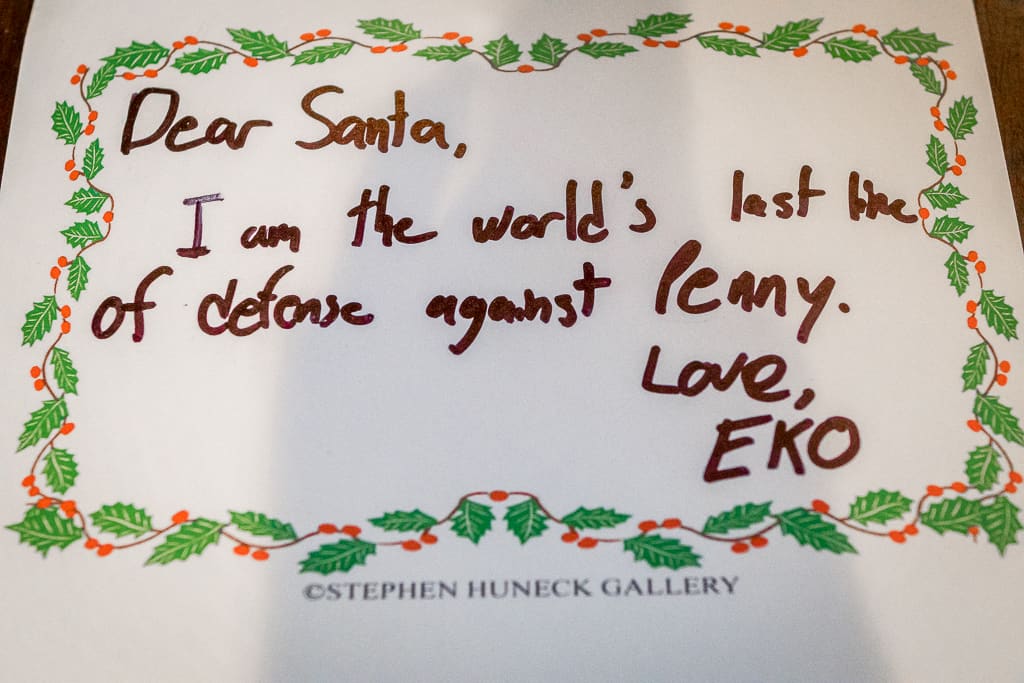 Dear Santa,
I am the world's last line
of defense against Penny.
Love,
EKO
©STEPHEN HUNECK GALLERY